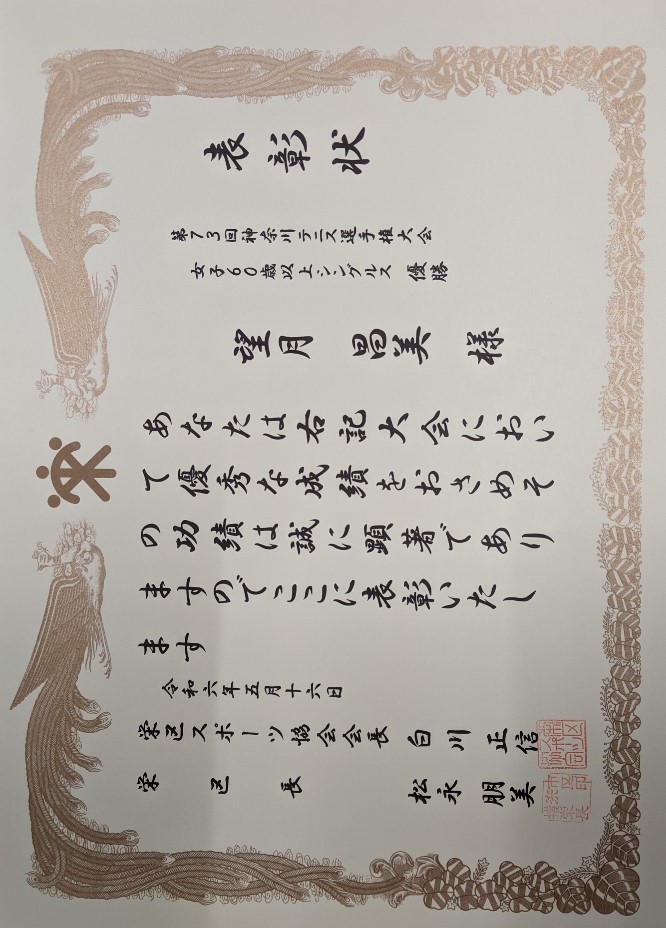 表彰状
第73回神奈川テニス選手権大会
女子60歳以上シングルス 優勝
望月 昌美 様
あなたは右記大会におい
て優秀な成績をおさめそ
の功績は誠に顕著であり
ますのでここに表彰いたし
ます
令和六年五月十六日
栄区スポーツ協会会長 白川 正信
栄 区 長 松永 朋美